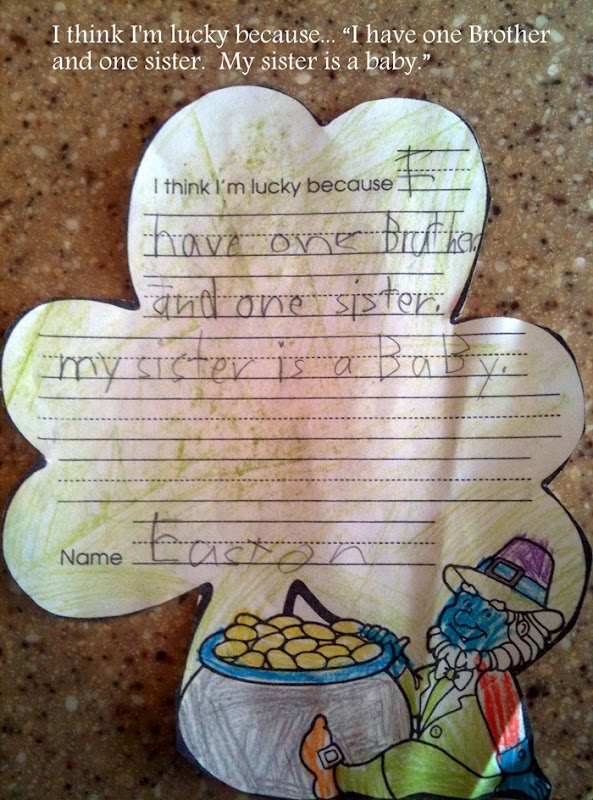 I think I'm lucky because... “I have one Brother
and one sister. My sister is a baby.”
I think I'm lucky because I
have one Bruther
and one sister.
my sister is a BaBy.
Name Easton